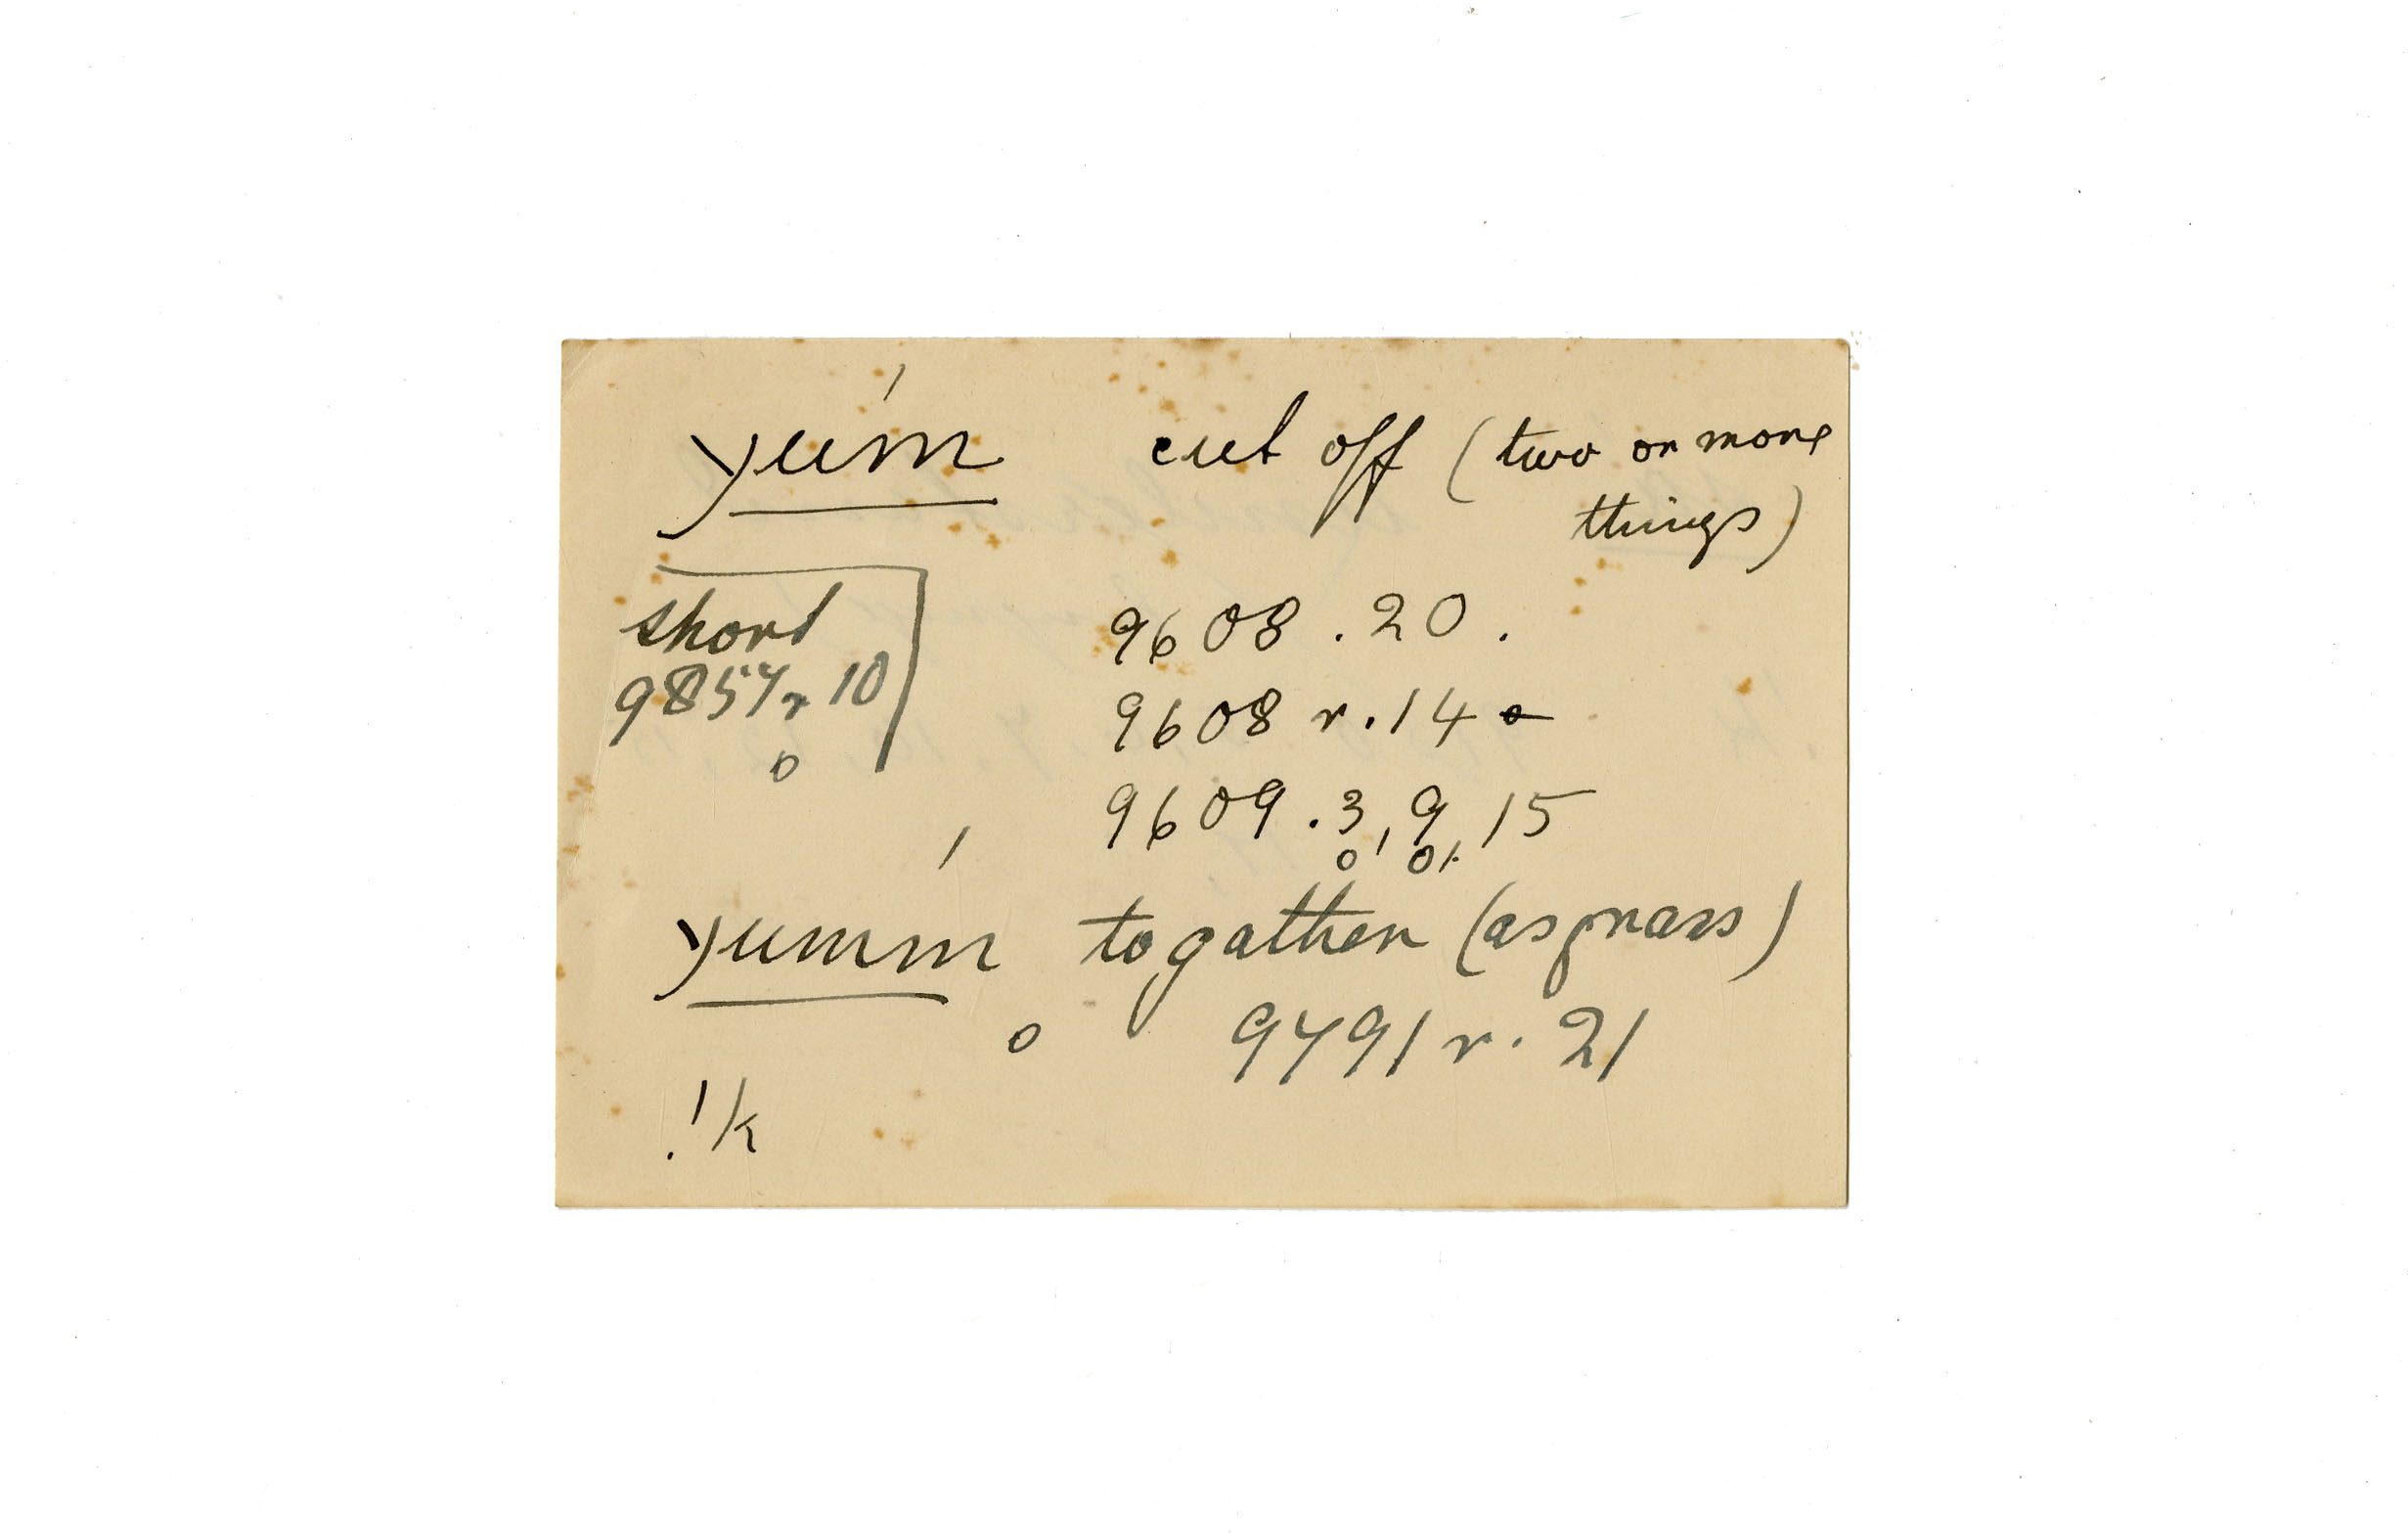 yum̀́ cut off (two or more
things)
short
9857r 10
o
9608 . 20 .
9608 r. 14 o
9609 . 3, 9, 15
o o
yumḿ to gather (as grass)
o 9491 r. 21
!k